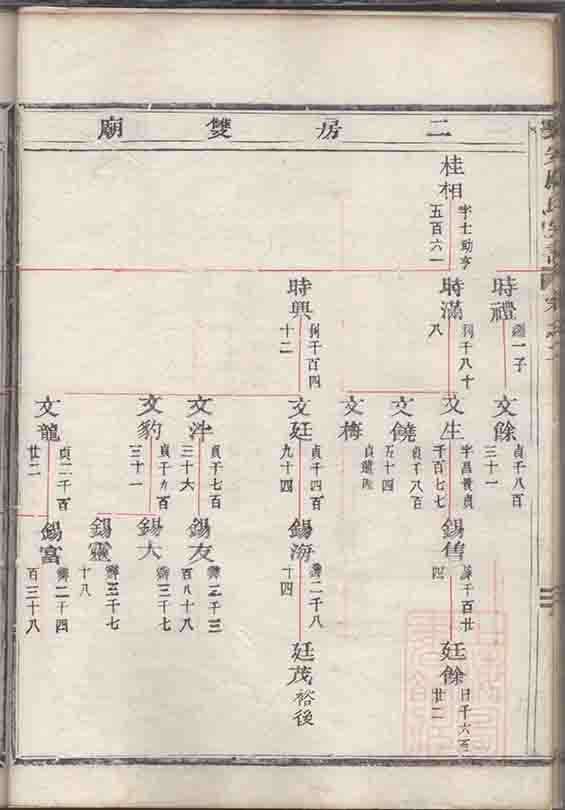 二房雙廟
桂相
字士助亨
五百六一
時禮
繼一子
時滿
利千八十
八
時興
利千百四
十二
文餘
貞千八百
三十一
文生
字昌貴貞
千百七七
文饒
貞千八百
五十四
文梅
文廷
貞千四百
九十四
文泮
貞千七百
三十六
文豹
貞千九百
三十一
文龍
貞二千百
廿二
錫舊
錫海
十四
錫友
百八十八
錫大
錫靈
十八
錫富
百三十八
廷餘
日千六百
廿二
廷茂
裕後